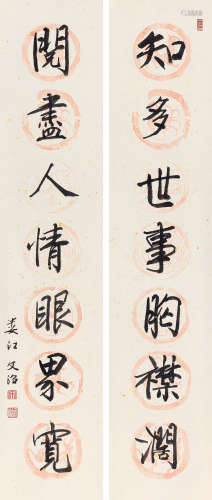 知多世事胸襟濶
閱盡人情眼界寬
婁江文治